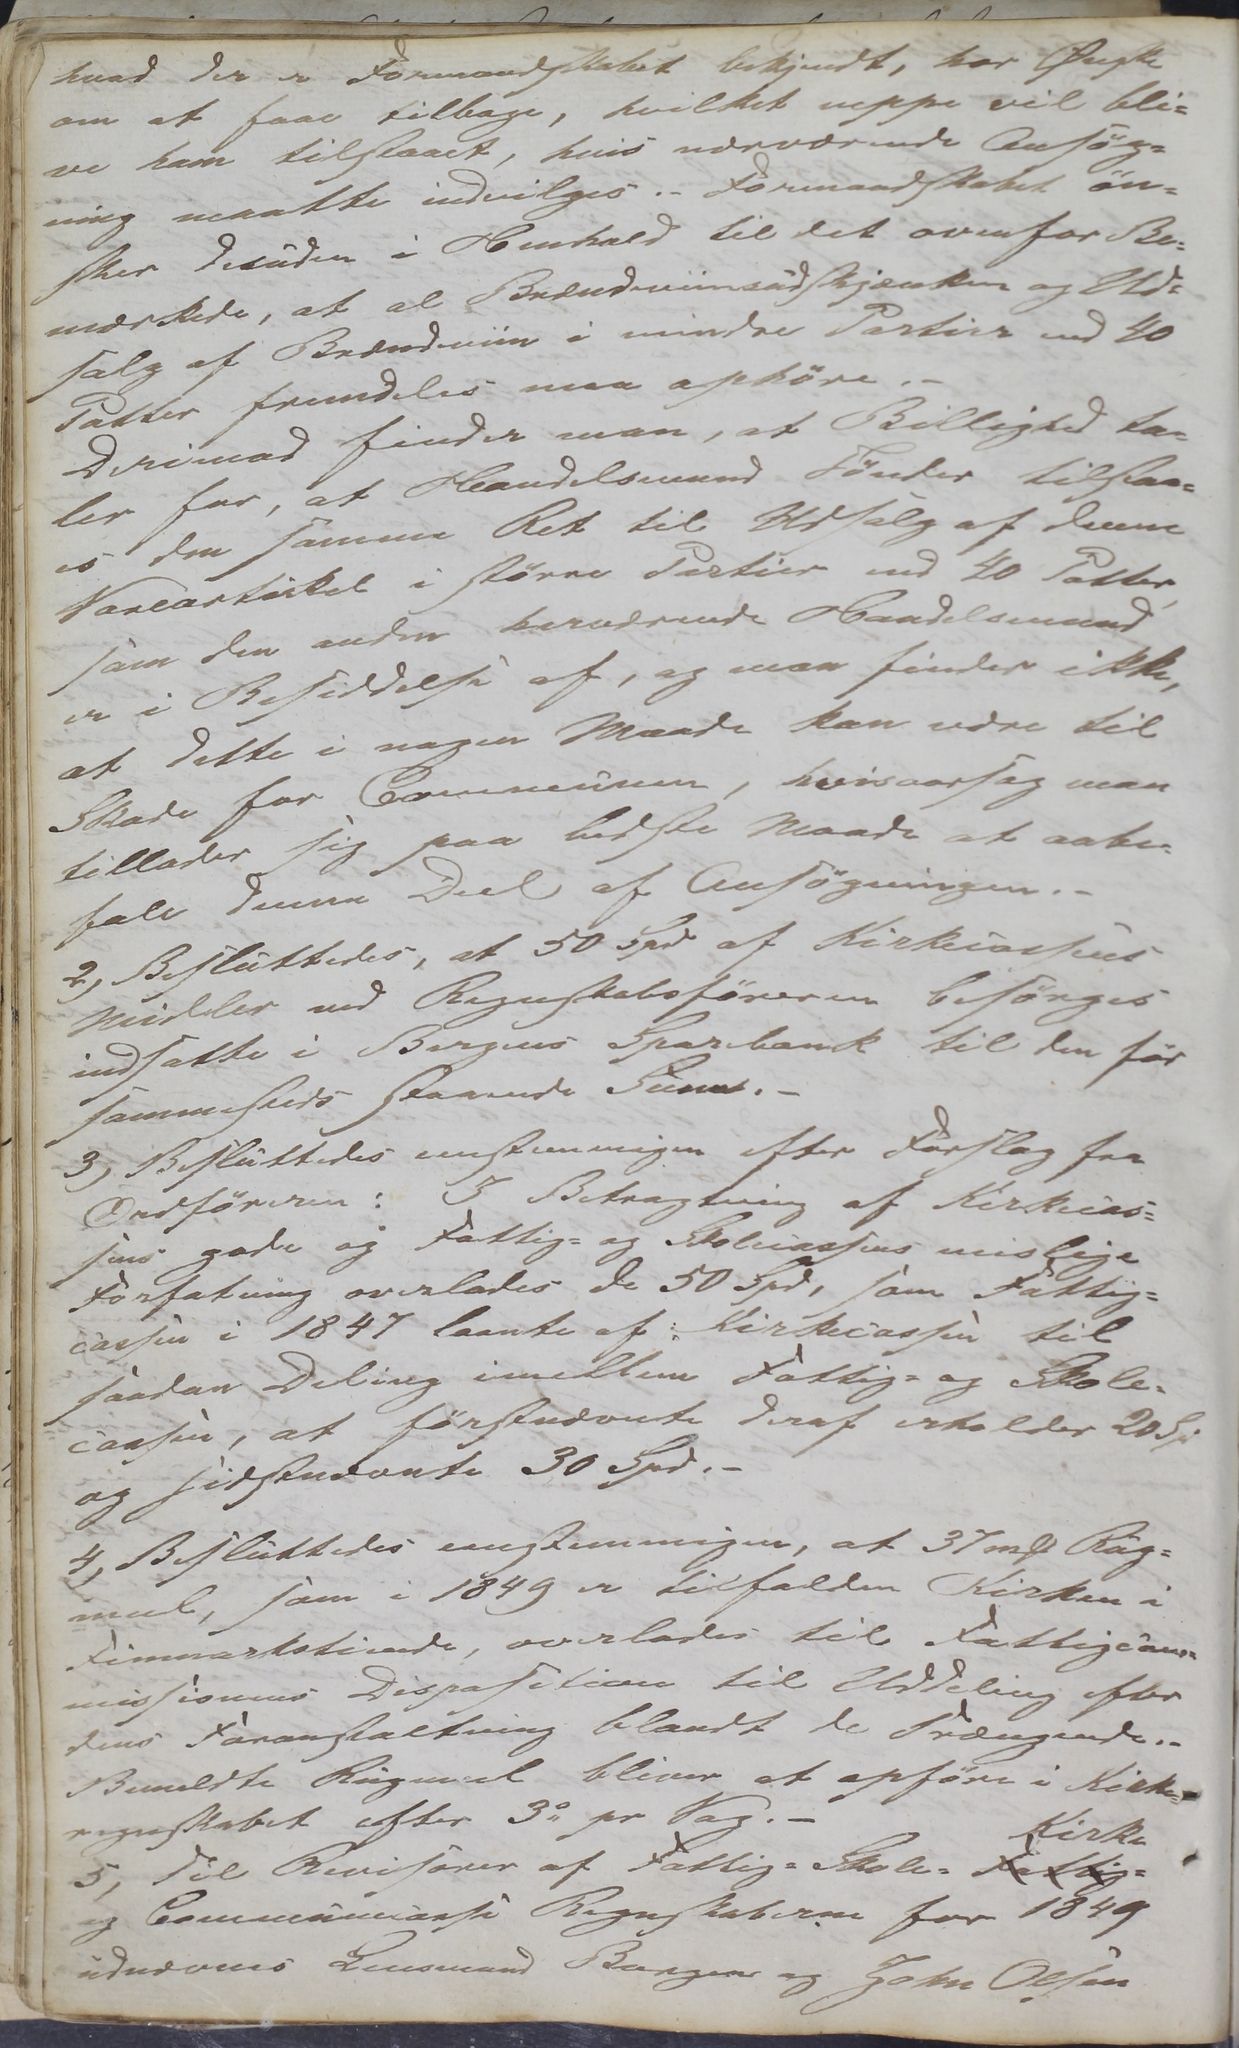 hvad der er Formandskabet bekjendt, har Ønske
om at faae tilbage, hvilket neppe vil bli-
ve ham tilstaaet, hvis nærværende Ansög-
ning maatte indvilges.- Formandskabet ön-
sker desuden i Henhold til det ovenfor Be-
mærkede, at al Brændeviinsudskjænken og Ud-
salg af Brændeviin i mindre Partier end 40
Potter fremdeles maa ophöre.-
Derimod finder man, at Billighed ta-
ler for, at Handelsmand Fönder tilstaa-
es den samme Ret til Udsalg af denne
Vareartikel i större Partier end 40 Potter,
som den anden herværende Handelsmand
er i Besiddelse af, og man finder ikke,
at dette i nogen Maade kan være til
Skade for Communen, hvisaarsag man
tillader sig paa bedste Maade at anbe-
fale denne Deel af Ansögningen.-
2, Besluttedes, at 50 Spd af Kirkecassens
Midler ved Regnskabsföreren besörges
indsatte i Bergens Sparebank til den för
sammesteds staaende Summa.-
3, Besluttedes eenstemmigen efter Forslag fra
Ordföreren: I Betragtning af Kirkecas-
sens gode og Fattig- og Skolecassens mislige
Forfatning overlades de 50 Spd, som Fattig-
cassen i 1847 laante af Kirkecassen til
saadan Deling imellem Fattig- og Skole-
cassen, at förstnævnte deraf erholder 20 Sp
og sidstnævnte 30 Spd.-
4, Besluttedes eenstemmigen, at 37 mk Rug-
meel, som i 1849 er tilfalden Kirken i
Finmarkstiende, overlades til Fattigcom-
missionens Disposition til Uddeling efter
dens Foranstaltning blandt de Trængende.-
Bemeldte Rugmeel bliver at opföre i Kirke-
regnskabet efter 3 pr Vog.-
Kirke
5, Til Revisorer af Fattig- Skole- Fattig-
og Communecasse Regnskaberne for 1849
udnævnes Lensmand Borgen og John Olsen